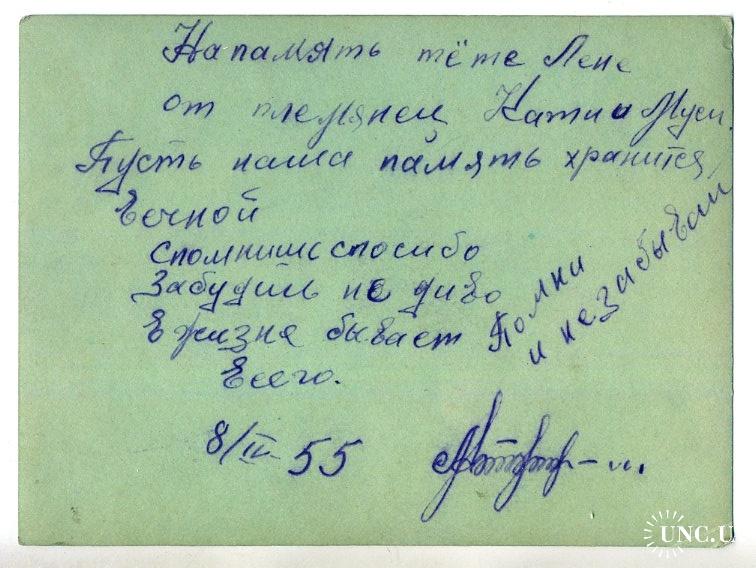 На память тёте Лене
от племянец Кати и Муси.
Пусть наша память хранится
Вечной
спомнишь спосибо
Забудишь не диво
В жизне бывает
Всего.
Помни
и незабывай
8/IV-55
UNC.U